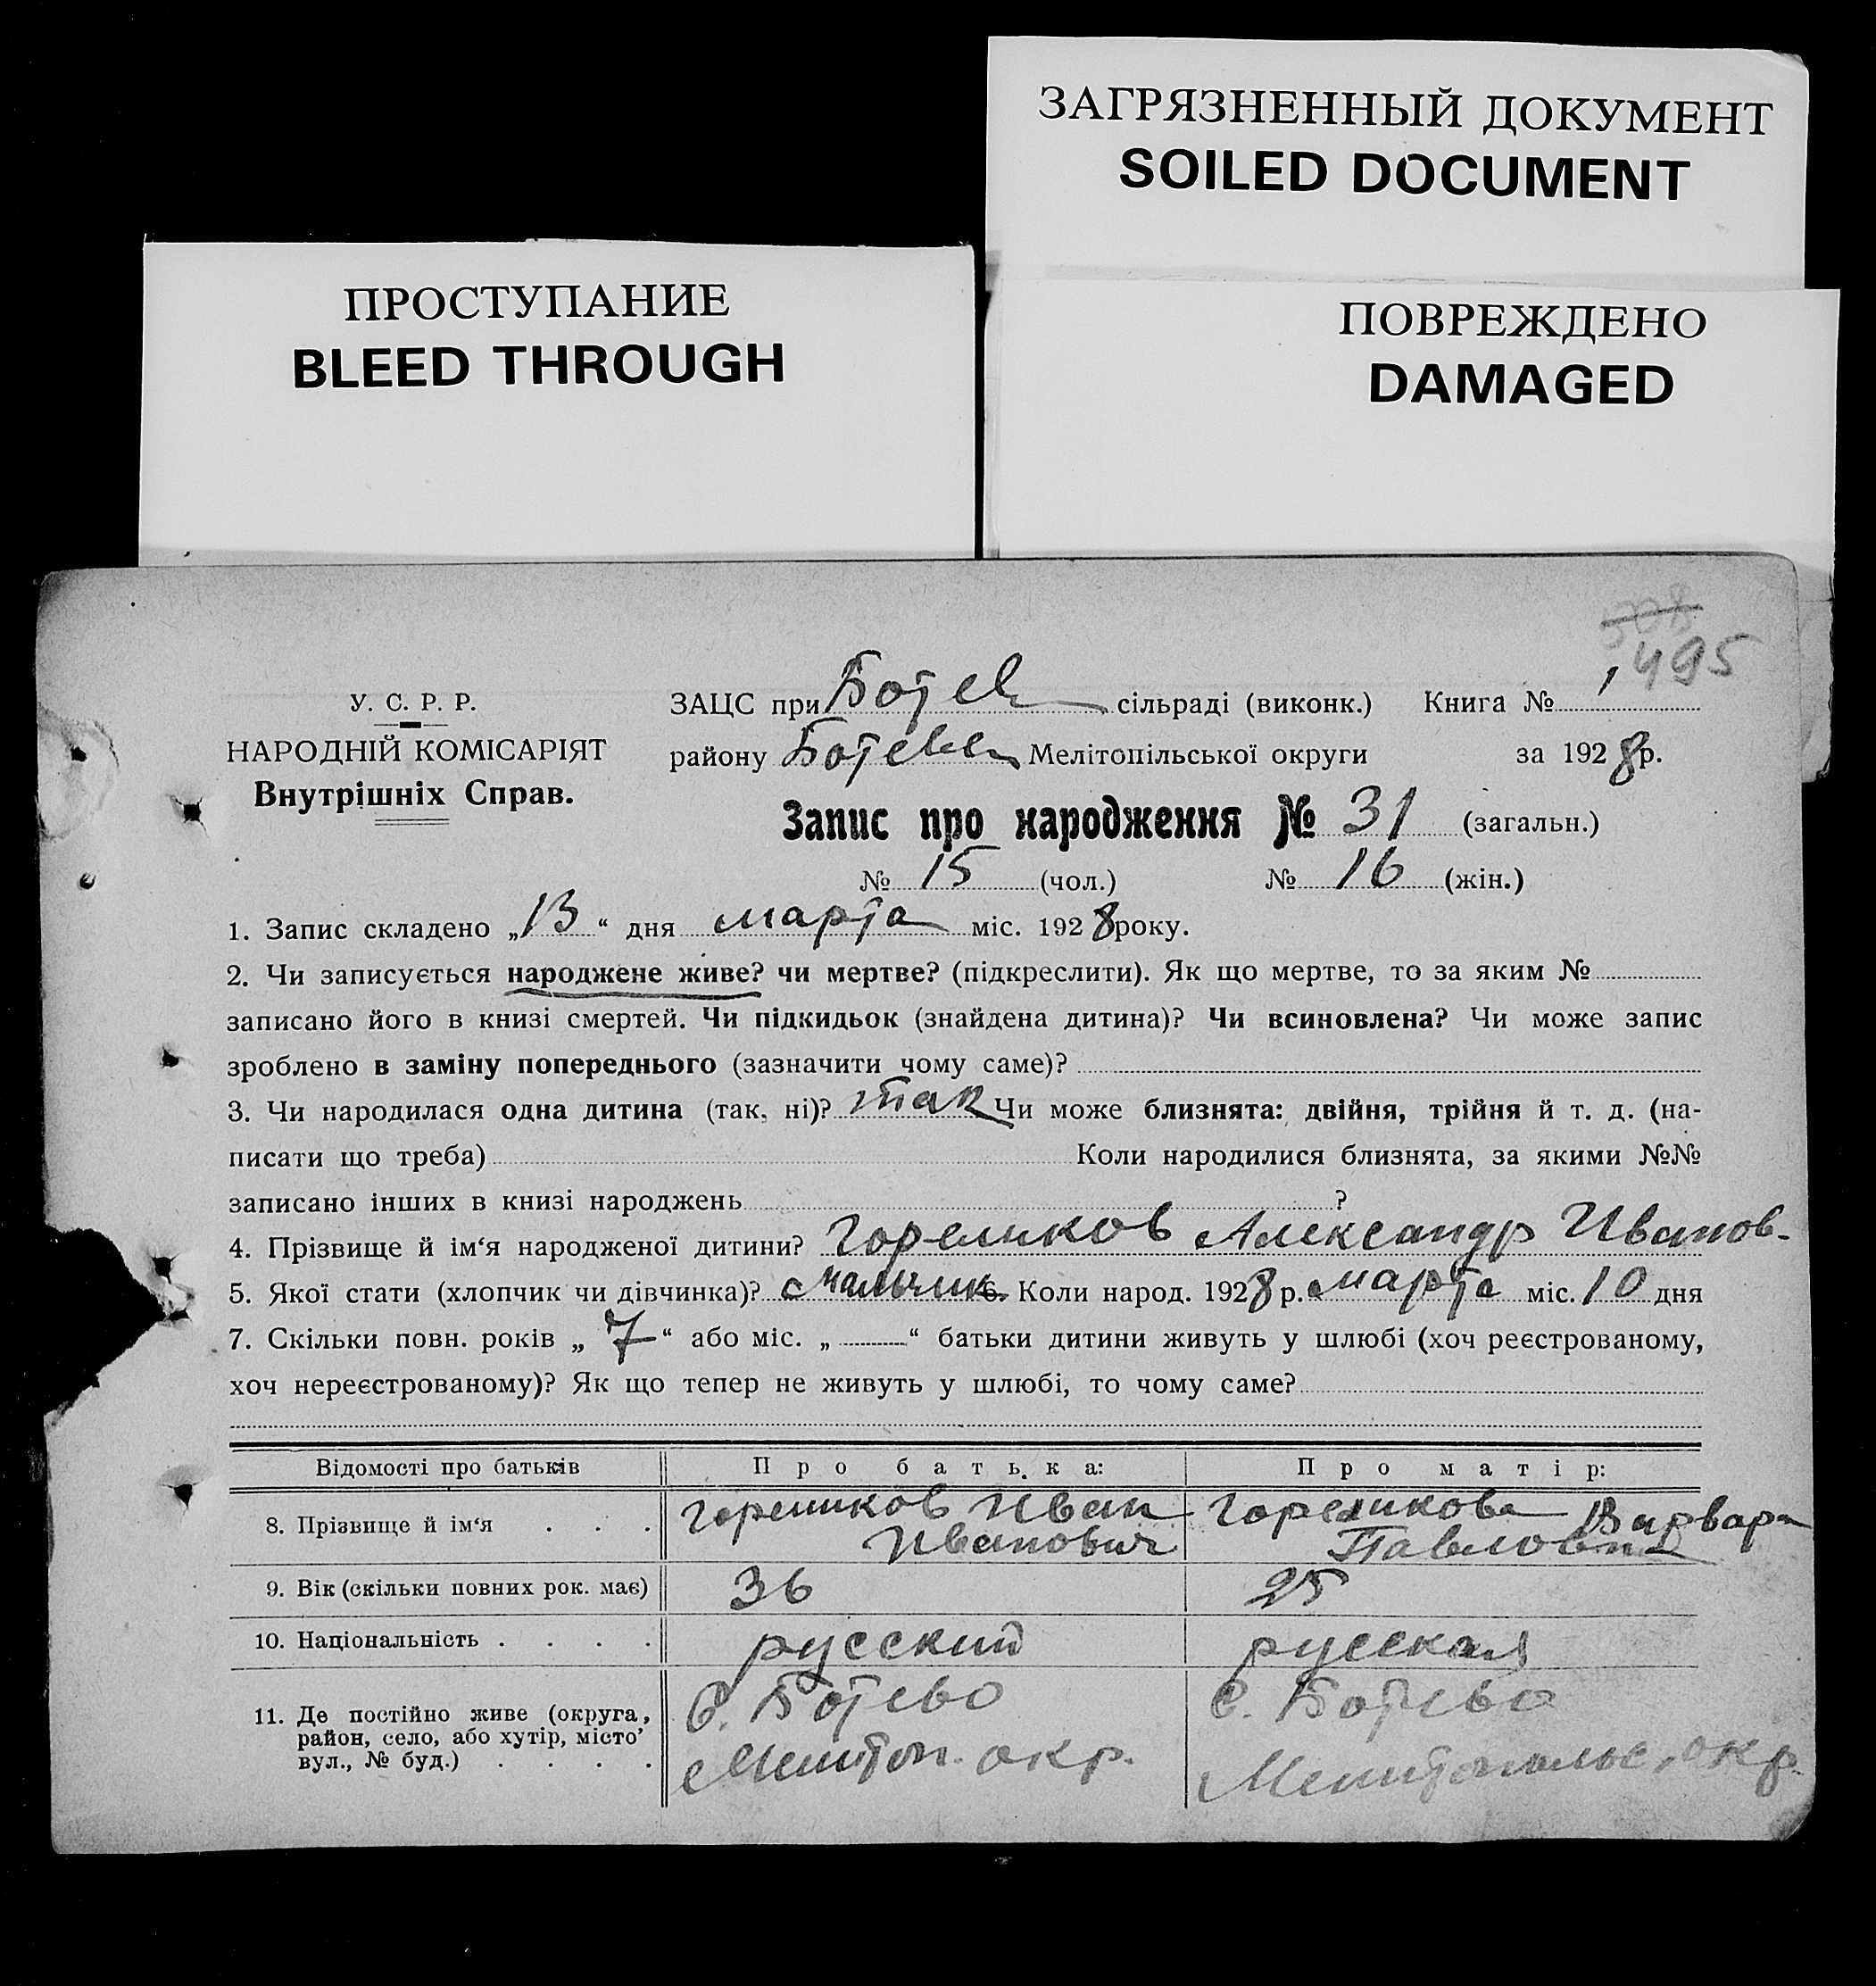 ЗАГРЯЗНЕННЫЙ ДОКУМЕНТ
SOILED DOCUMENT
ПРОСТУПАНИЕ
BLEED THROUGH
ПОВРЕЖДЕНО
DAMAGED
508
495
У. С. Р. Р.
НАРОДНІЙ КОМІСАРІЯТ
Внутрішніх Справ.
ЗАЦС при Ботев сільраді (виконк.) Книга № 1
району Ботевск Мелітопільської округи за 1928 р.
Запис про народження № 31 (загальн.)
№ 15 (чол.) № 16 (жін.)
1. Запис складено „13“ дня марта міс. 1928 року.
2. Чи записується народжене живе? чи мертве? (підкреслити). Як що мертве, то за яким №
записано його в книзі смертей. Чи підкидьок (знайдена дитина)? Чи всиновлена? Чи може запис
зроблено в заміну попереднього (зазначити чому саме)?
3. Чи народилася одна дитина (так, ні)? так Чи може близнята: двійня, трійня й т. д. (на-
писати що треба) Коли народилися близнята, за якими №№
записано інших в книзі народжень ?
4. Прізвище й ім‘я народженої дитини? Гореликов Александр Иванов-
5. Якої стати (хлопчик чи дівчинка)? мальчик 6. Коли народ. 1928 р. марта міс. 10 дня
7. Скільки повн. років „ 7 “ або міс. „ “ батьки дитини живуть у шлюбі (хоч реєстрованому,
хоч нереєстрованому)? Як що тепер не живуть у шлюбі, то чому саме?
Відомості про батьків Про батька: Про матір:
8. Прізвище й ім‘я . . . Гореликов Иван Гореликова Варвара
Иванович Павловна
9. Вік (скільки повних рок. має) 36 25
10. Національність . . . . русский русская
11. Де постійно живе (округа, район, село, або хутір, місто’ вул., № буд.) . . . . С. Ботево С. Ботево
Мелитоп. окр. Мелитопольс. окр.